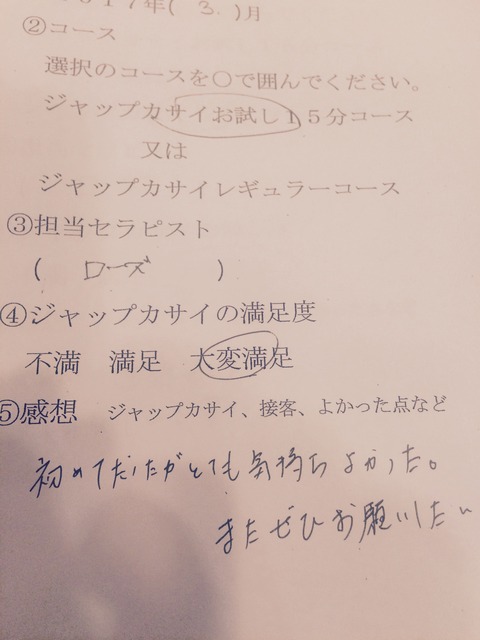 2017年( 3. )月
②コース
選択のコースを〇で囲んでください。
ジャップカサイお試し15分コース
又は
ジャップカサイレギュラーコース
③担当セラピスト
( ローズ )
④ジャップカサイの満足度
不満 満足 大変満足
⑤感想 ジャップカサイ、接客、よかった点など
初めてだったがとても気持ちよかった。
またぜひお願いしたい